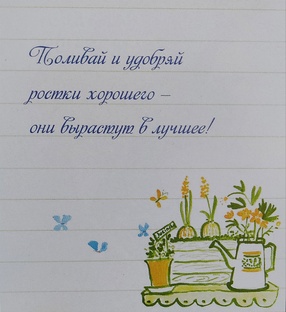 Поливай и удобряй
ростки хорошего –
они вырастут в лучшее!